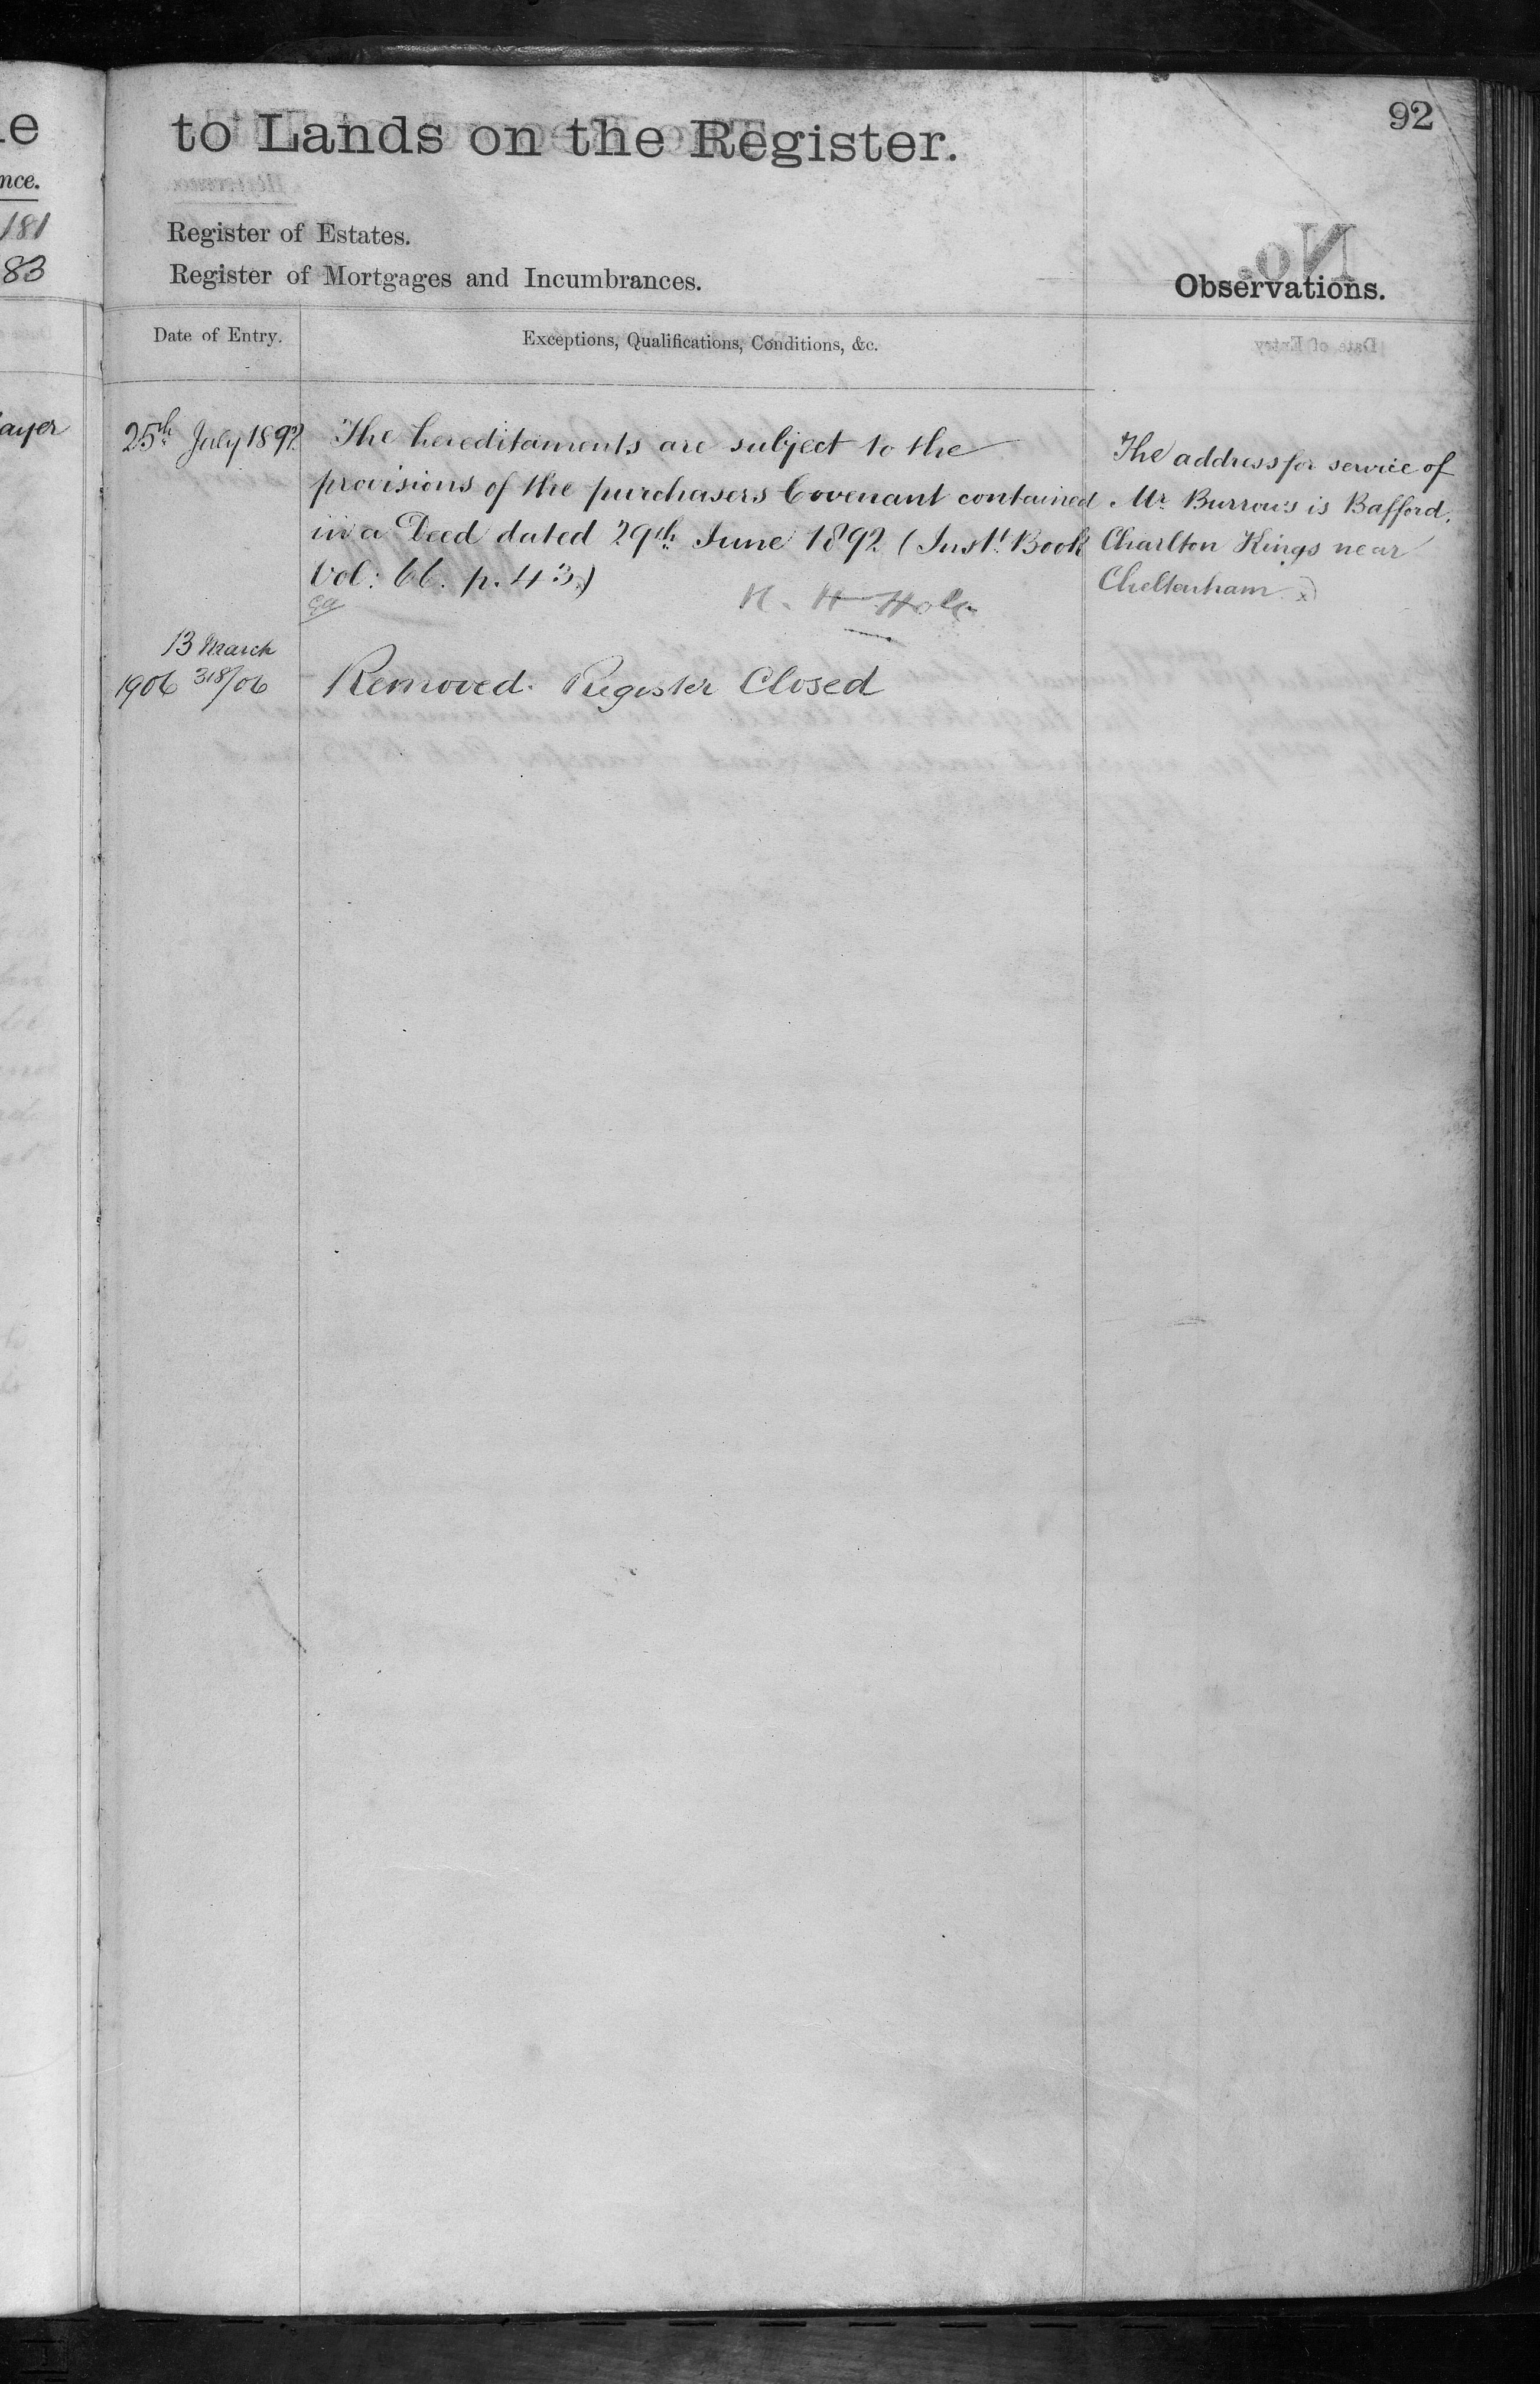 to Lands on the Register.
92
nce.
181
83
Register of Estates.
Register of Mortgages and Incumbrances.
Observations.
Date of Entry.
Exceptions, Qualifications, Conditions, &c.
ayer
25th July 1892
The hereditaments are subject to the
provisions of the purchasers Covenant contained
in a Deed dated 29th June 1892 (Inst. Book
Vol: 66. p. 43.)
The address for service of
Mr Burrows is Bafford,
Charlton Kings near
Cheltenham
13 March
1906 318/06
Removed. Register Closed